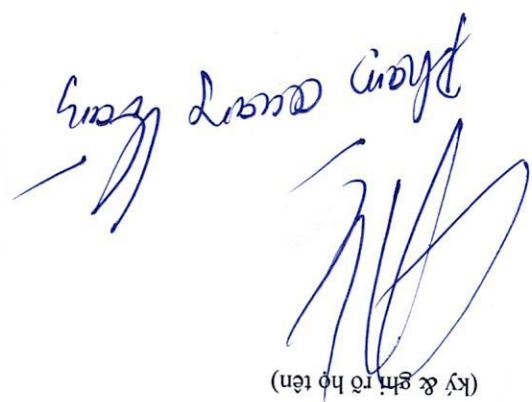 (ký & ghi rõ họ tên)
Phạm Quang